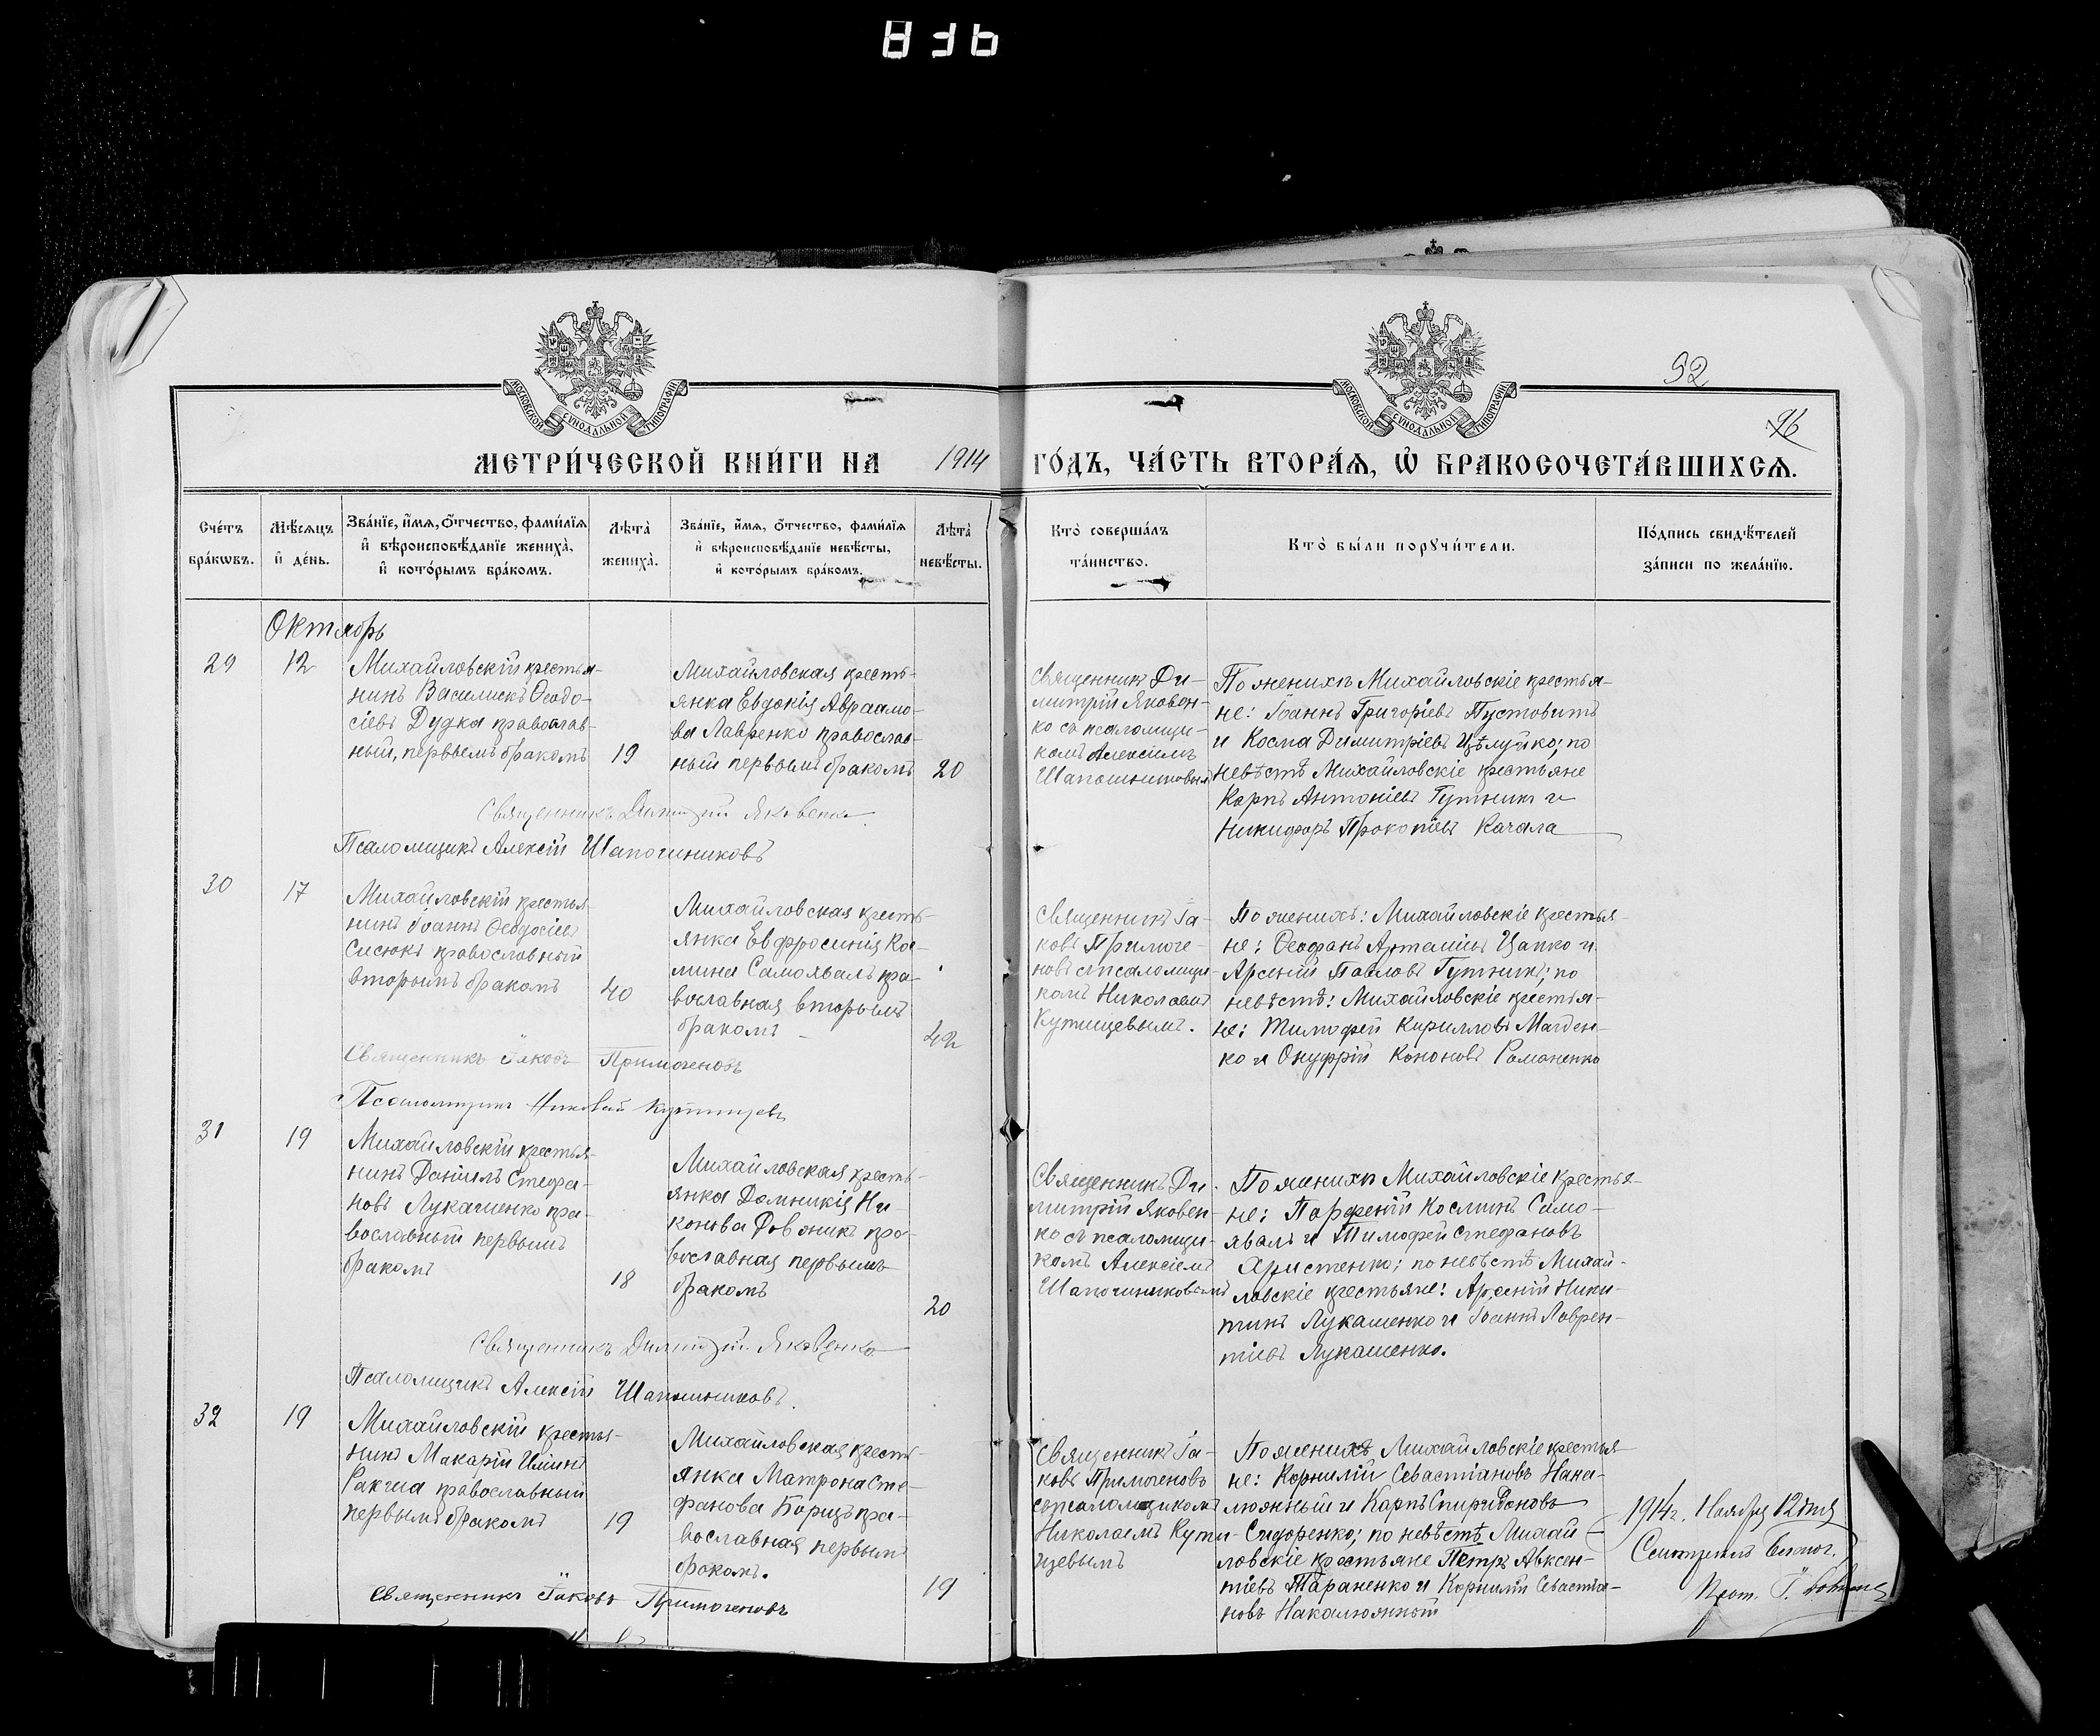 836
92
96
МОСКОВСКОЙ СѴНОДАЛЬНОЙ ТИПОГРАФІИ
МОСКОВСКОЙ СѴНОДАЛЬНОЙ ТИПОГРАФІИ
МЕТРИ́ЧЕСКОЙ КНИ́ГИ НА 1914 ГО́ДЪ, ЧА́СТЬ ВТОРА́Ѧ, Ѽ БРАКОСОЧЕТА́ВШИХСѦ.
Сче́тъ бра́кѡвъ.
Мѣ́сѧцъ и҆ де́нь.
Зва́нїе, и҆́мѧ, ѻ҆́тчество, фами́лїѧ
и҆ вѣроисповѣ́данїе жениха̀,
и҆ кото́рымъ бра́комъ.
Лѣта̀ жениха̀.
Зва́нїе, и҆́мѧ, ѻ҆́тчество, фами́лїѧ
и҆ вѣроисповѣ́данїе невѣ́сты,
и҆ кото́рымъ бра́комъ.
Лѣта̀ невѣ́сты.
Кто̀ соверша́лъ
та́инство.
Кто̀ бы́ли порꙋчи́тели.
По́дпись свидѣ́телей
за́писи по жела́нїю.
Октябрь
29
12
Михайловскій крестья-
нинъ Василискъ Ѳеодо-
сіевъ Дудка православ-
ный, первымъ бракомъ
19
Михайловская кресть-
янка Евдокія Авраамо-
ва Лавренко православ-
ный первымъ бракомъ
20
Священникъ Ди-
митрій Яковен-
ко съ псаломщи-
комъ Алексіемъ
Шапошниковым
По женихѣ Михайловскіе крестья-
не: Іоаннъ Григоріевъ Пустовитъ
и Косма Димитріевъ Цѣлуйко; по
невѣстѣ Михайловскіе крестьяне
Карпъ Антоніевъ Гутникъ и
Никифоръ Прокопіевъ Качала
Священникъ Димитрій Яковенко
Псаломщикъ Алексій Шапочниковъ
30
17
Михайловскій крестья-
нинъ Іоаннъ Ѳеодосіевъ
Сисюкъ православный
вторымъ бракомъ
40
Михайловская кресть-
янка Евфросинія Ко-
мина Самохвалъ пра-
вославная вторымъ
бракомъ
42
Священникъ Іа-
ковъ Примоге-
новъ съ псаломщи-
комъ Николаемъ
Кутищевымъ.
По женихѣ: Михайловскіе крестья-
не: Ѳеофанъ Артеміевъ Цапко и
Арсеній Павловъ Гутникъ; по
невѣстѣ: Михайловскіе крестья-
не: Тимофей Кирилловъ Магден-
ко и Онуфрій Кононовъ Романенко
Священникъ Іаковъ Примогеновъ
Псаломщикъ Николай Кутищевъ
31
19
Михайловскій крестья-
нинъ Даніилъ Стефа-
новъ Лукашенко пра-
вославный первымъ
бракомъ
18
Михайловская кресть-
янка Домникія Ни-
конова Довжикъ пра-
вославная первымъ
бракомъ
20
Священникъ Ди-
митрій Яковен-
ко съ псаломщи-
комъ Алексіемъ
Шапочниковымъ
По женихѣ Михайловскіе крестья-
не: Парфеній Косминъ Само-
хвалъ и Тимофей Стефановъ
Аристенко; по невѣстѣ Михай-
ловскіе крестьяне: Арсеній Ники-
тинъ Лукашенко и Іоаннъ Лаврен-
тіевъ Лукашенко.
Священникъ Димитрій Яковенко
Псаломщикъ Алексій Шапошниковъ.
32
19
Михайловскій крестья-
нинъ Макарій Ильинъ
Ракша православный
первымъ бракомъ
19
Михайловская кресть-
янка Матрона Сте-
фанова Борщъ пра-
вославная первымъ
бракомъ.
19
Священникъ Іа-
ковъ Примогеновъ
съ псаломщикомъ
Николаемъ Кути-
щевымъ
По женихѣ Михайловскіе крестья-
не: Корнилій Севастіановъ Нака-
люжный и Карпъ Спиридоновъ
Сидоренко; по невѣстѣ Михай-
ловскіе крестьяне Петръ Авксен-
тіевъ Тараненко и Корнилій Севастіа-
новъ Накалюжный
1914 г. Ноября 12 дня
Священникъ Іаковъ Примогеновъ